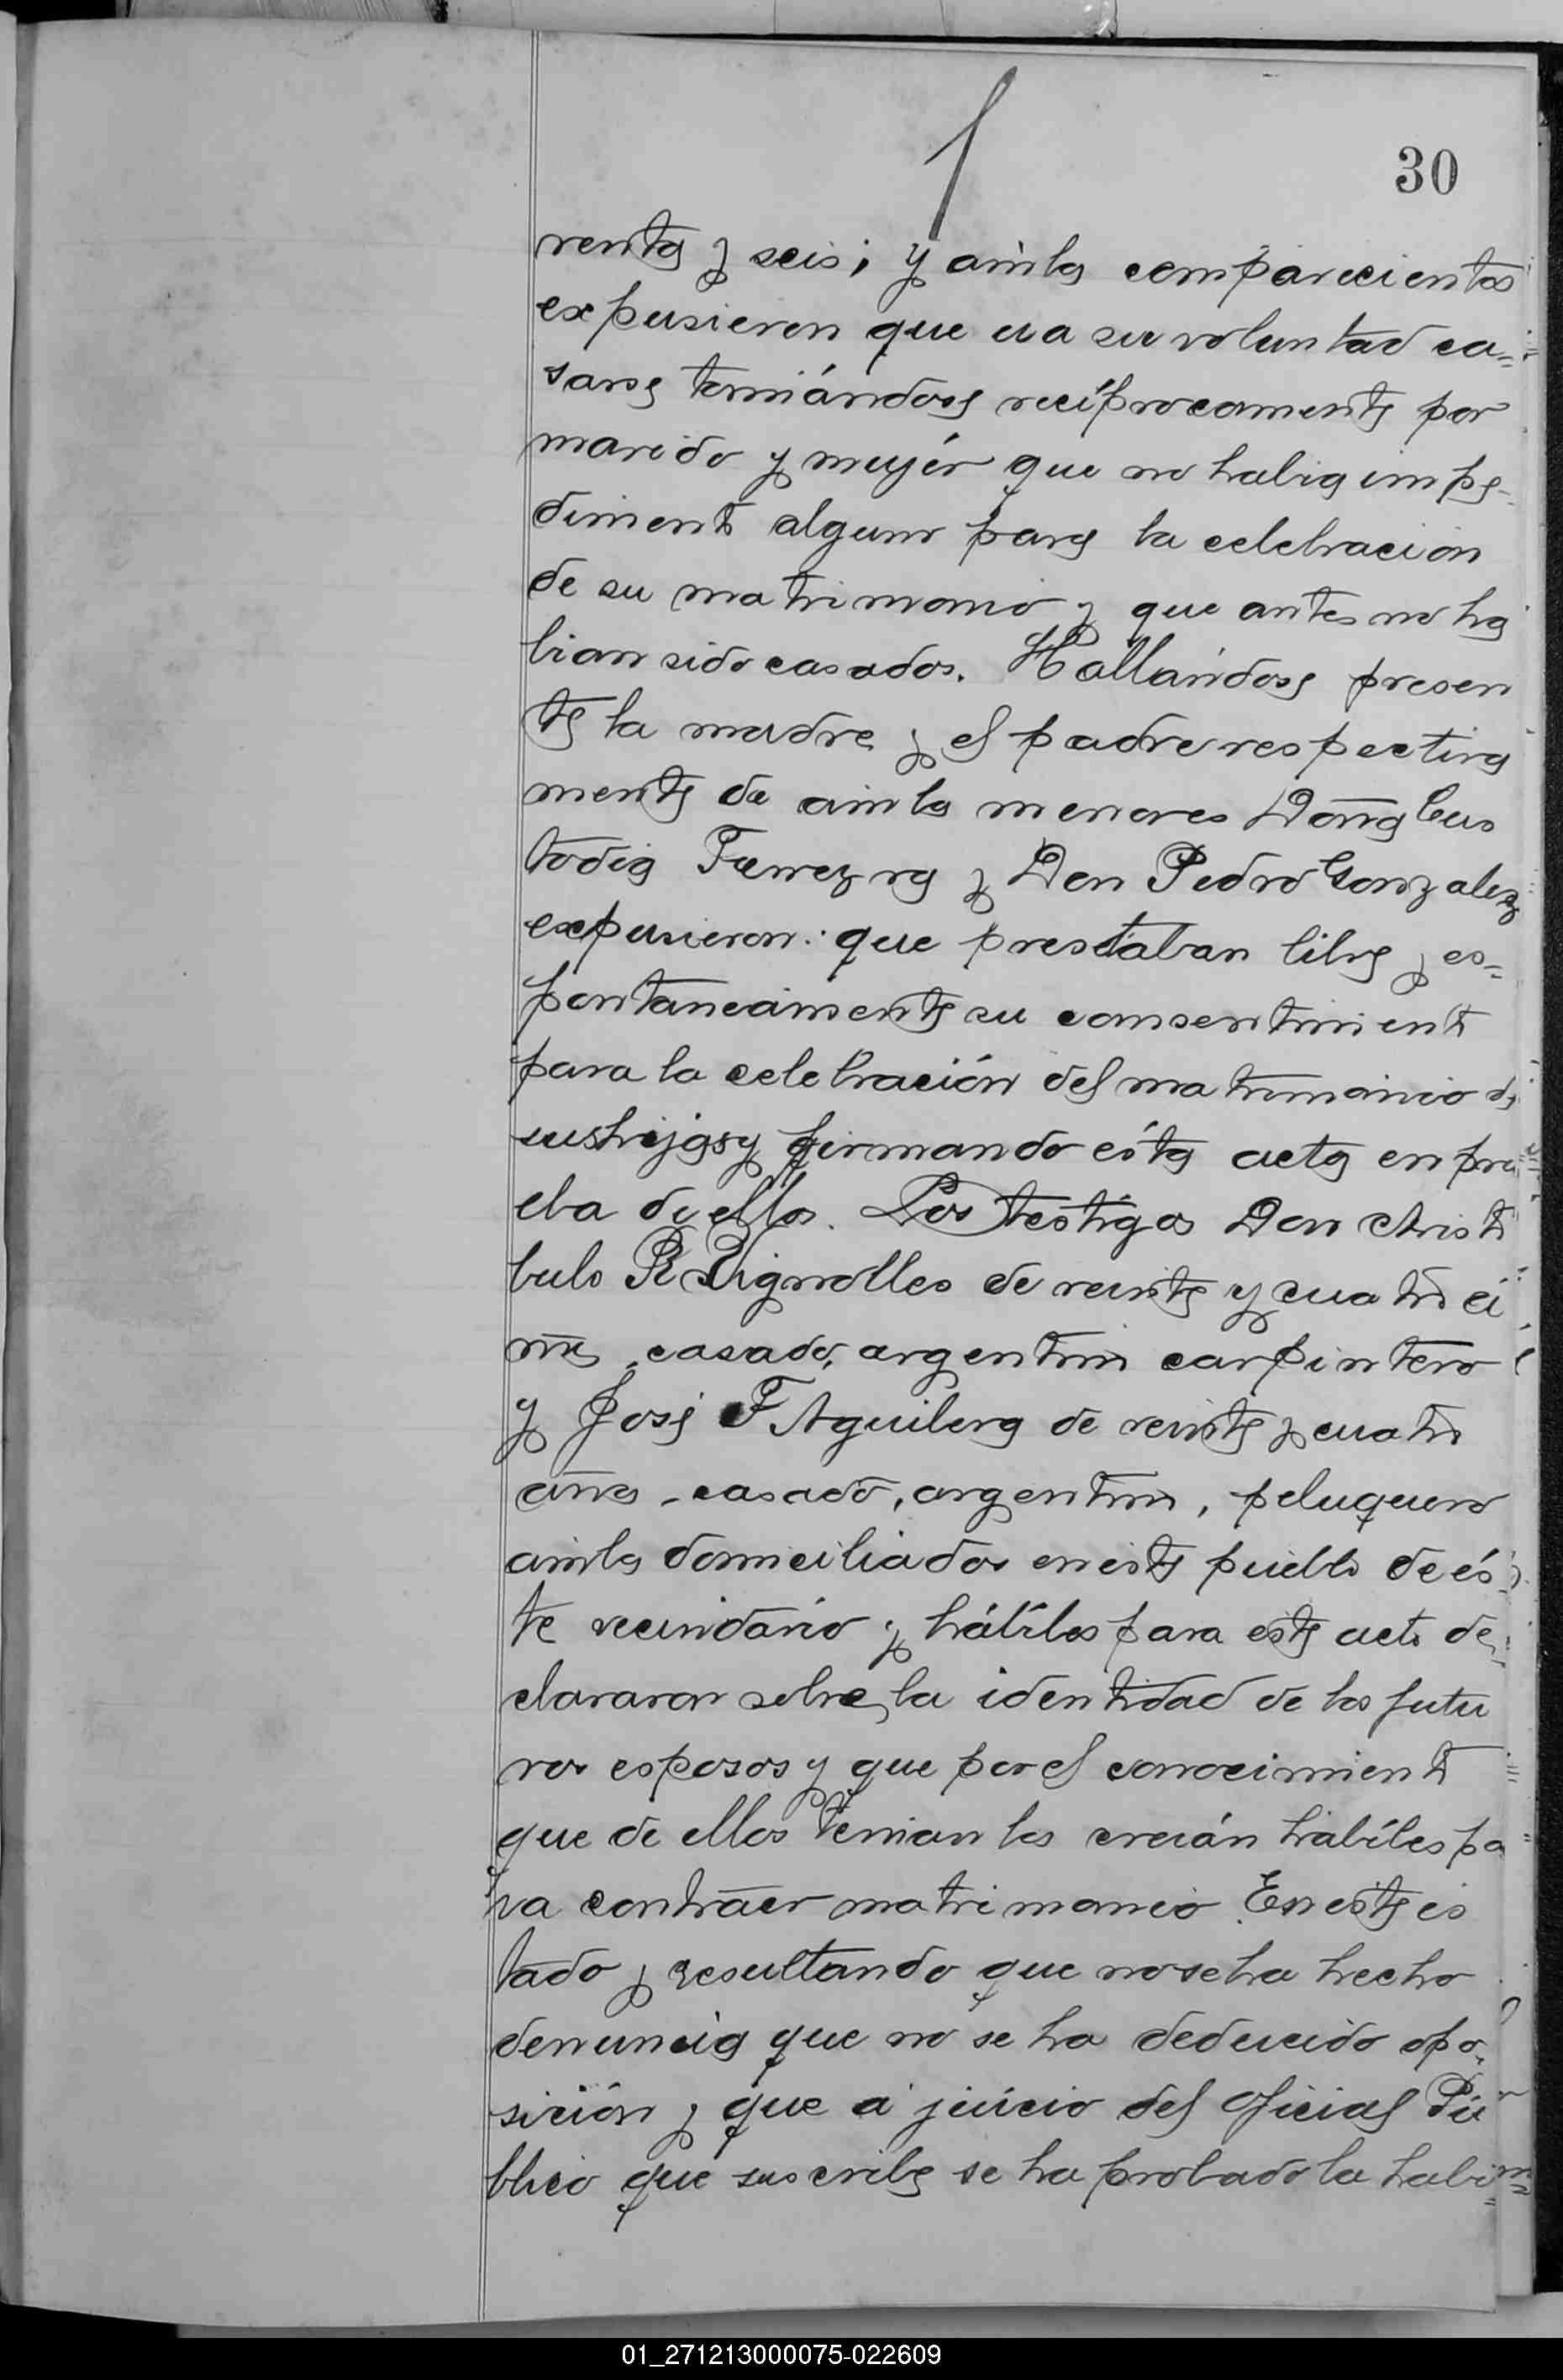 30
renta y seis; y ambos comparecientes
expusieron que era su voluntad ca=
sarse tomándose recíprocamente por
marido y mujér que no habia impe-
dimento alguno para la celebración
de su matrimonio y que antes no ha
bian sido casados. Hallándose presen
te la madre y el padre respectiva
mente de ambos menores Doña Cus
todia y Don Pedro Gonzalez
expusieron: que prestaban libre y es=
pontaneamente su consentimiento
para la celebración del matrimonio de
sus hijos y firmando ésta acta en pru
eba de ello. Los testigos Don Aristó
bulo R Vignolles de veinte y cuatro a
ños, casado, argentino carpintero
y José F Aguilera de veinte y cuatro
años, casado, argentino, peluquero
ambos domiciliados en este pueblo de és
te vecindario y hábiles para este acto de
clararon sobre la identidad de los futu
ros esposos y que por el conocimiento
que de ellos tenian los creián hábiles pa
ra contraer matrimonio. En este es
tado y resultando que no se ha hecho
denuncia que no se ha deducido opo
sición y que a juicio del Oficial Pú
blico que suscribe se ha probado la habi=
01_271213000075-022609